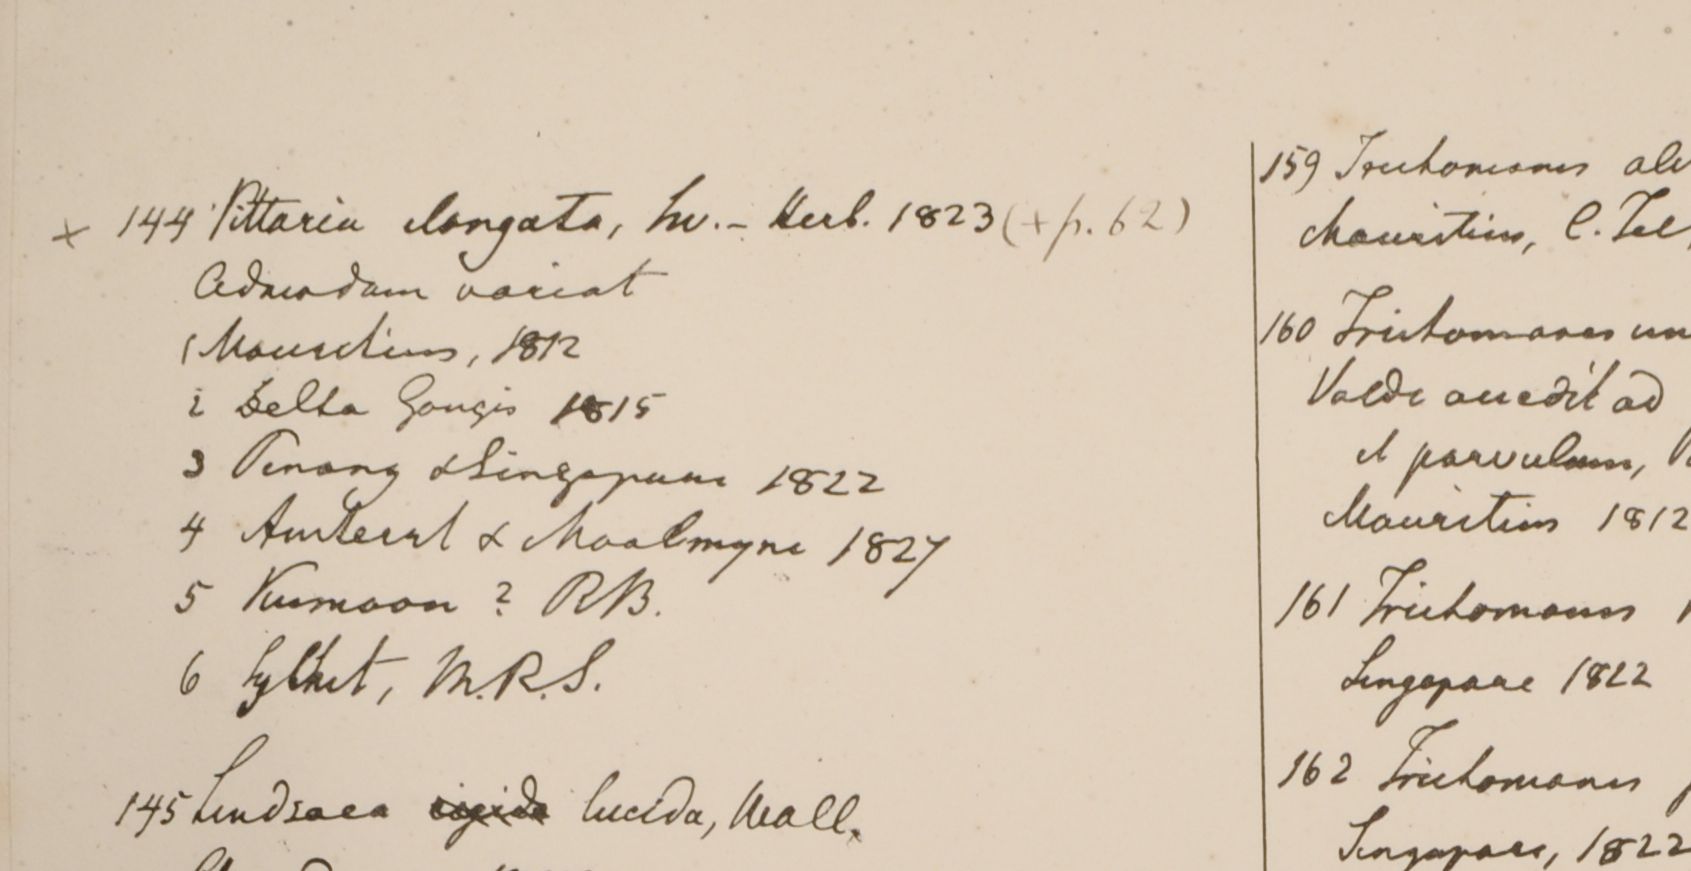 + 144 Vittaria elongata, Sw. - Herb. 1823 (+ p. 62)
Admodum variat
1 Mauritius, 1812
2 Delta Gangis 1815
3 Penang & Singapura 1822
4 Amherst & Moalmyne 1827
5 Kumaon ? R.B.
6 Sylhet, M.R.S.
145 Lindsaea rigida lucida, Wall.
159 Trichomanes
Mauritius, C. Tel
160 Trichomanes
Valde accedit ad
et parvulum,
Mauritius 1812
161 Trichomanes
Singapore 1822
162 Trichomanes
Singapore, 1822